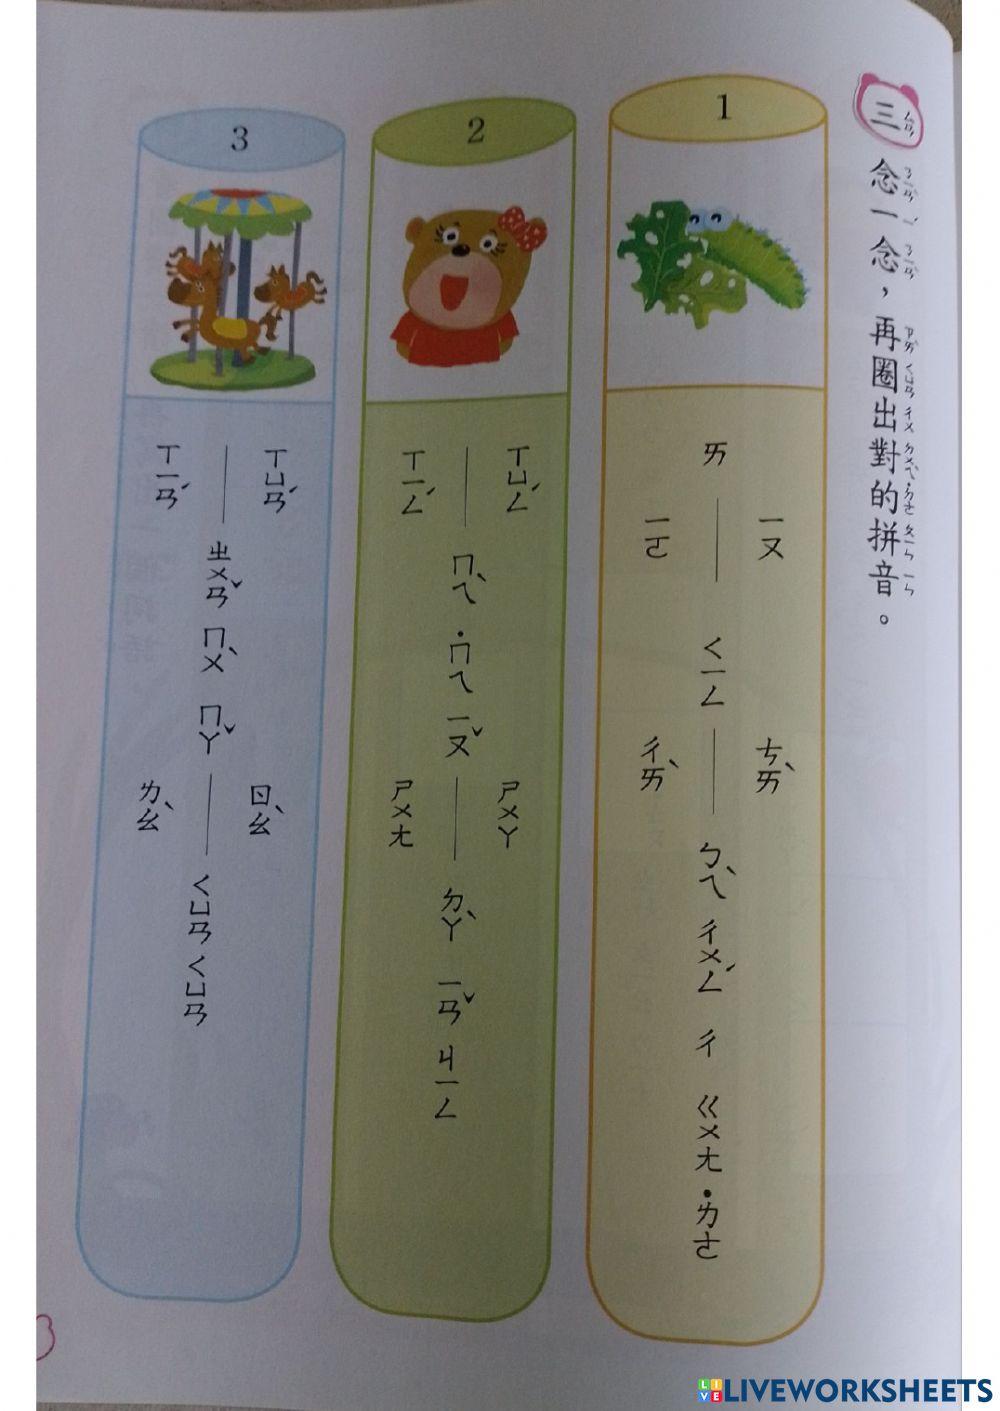 三、念一念，再圈出對的拼音。
ㄙㄢ ㄋㄧㄢˋ ㄧˊ ㄋㄧㄢˋ ㄗㄞˋ ㄑㄩㄢ ㄔㄨ ㄉㄨㄟˋ ˙ㄉㄜ ㄆㄧㄣ ㄧㄣ
1
ㄞ
ㄧㄡ
ㄧㄛ
ㄑㄧㄥ
ㄘㄞˋ
ㄔㄞˋ
ㄅㄟˋ ㄔㄨㄥˊ ㄔ ㄍㄨㄤ ˙ㄌㄜ
2
ㄒㄩㄥˊ
ㄒㄧㄥˊ
ㄇㄟˋ ˙ㄇㄟ ㄧㄡˇ
ㄕㄨㄚ
ㄕㄨㄤ
ㄉㄚˋ ㄧㄢˇ ㄐㄧㄥ
3
ㄒㄩㄢˊ
ㄒㄧㄢˊ
ㄓㄨㄢˇ ㄇㄨˋ ㄇㄚˇ
ㄖㄠˋ
ㄌㄠˋ
ㄑㄩㄢ ㄑㄩㄢ
LIVEWORKSHEETS